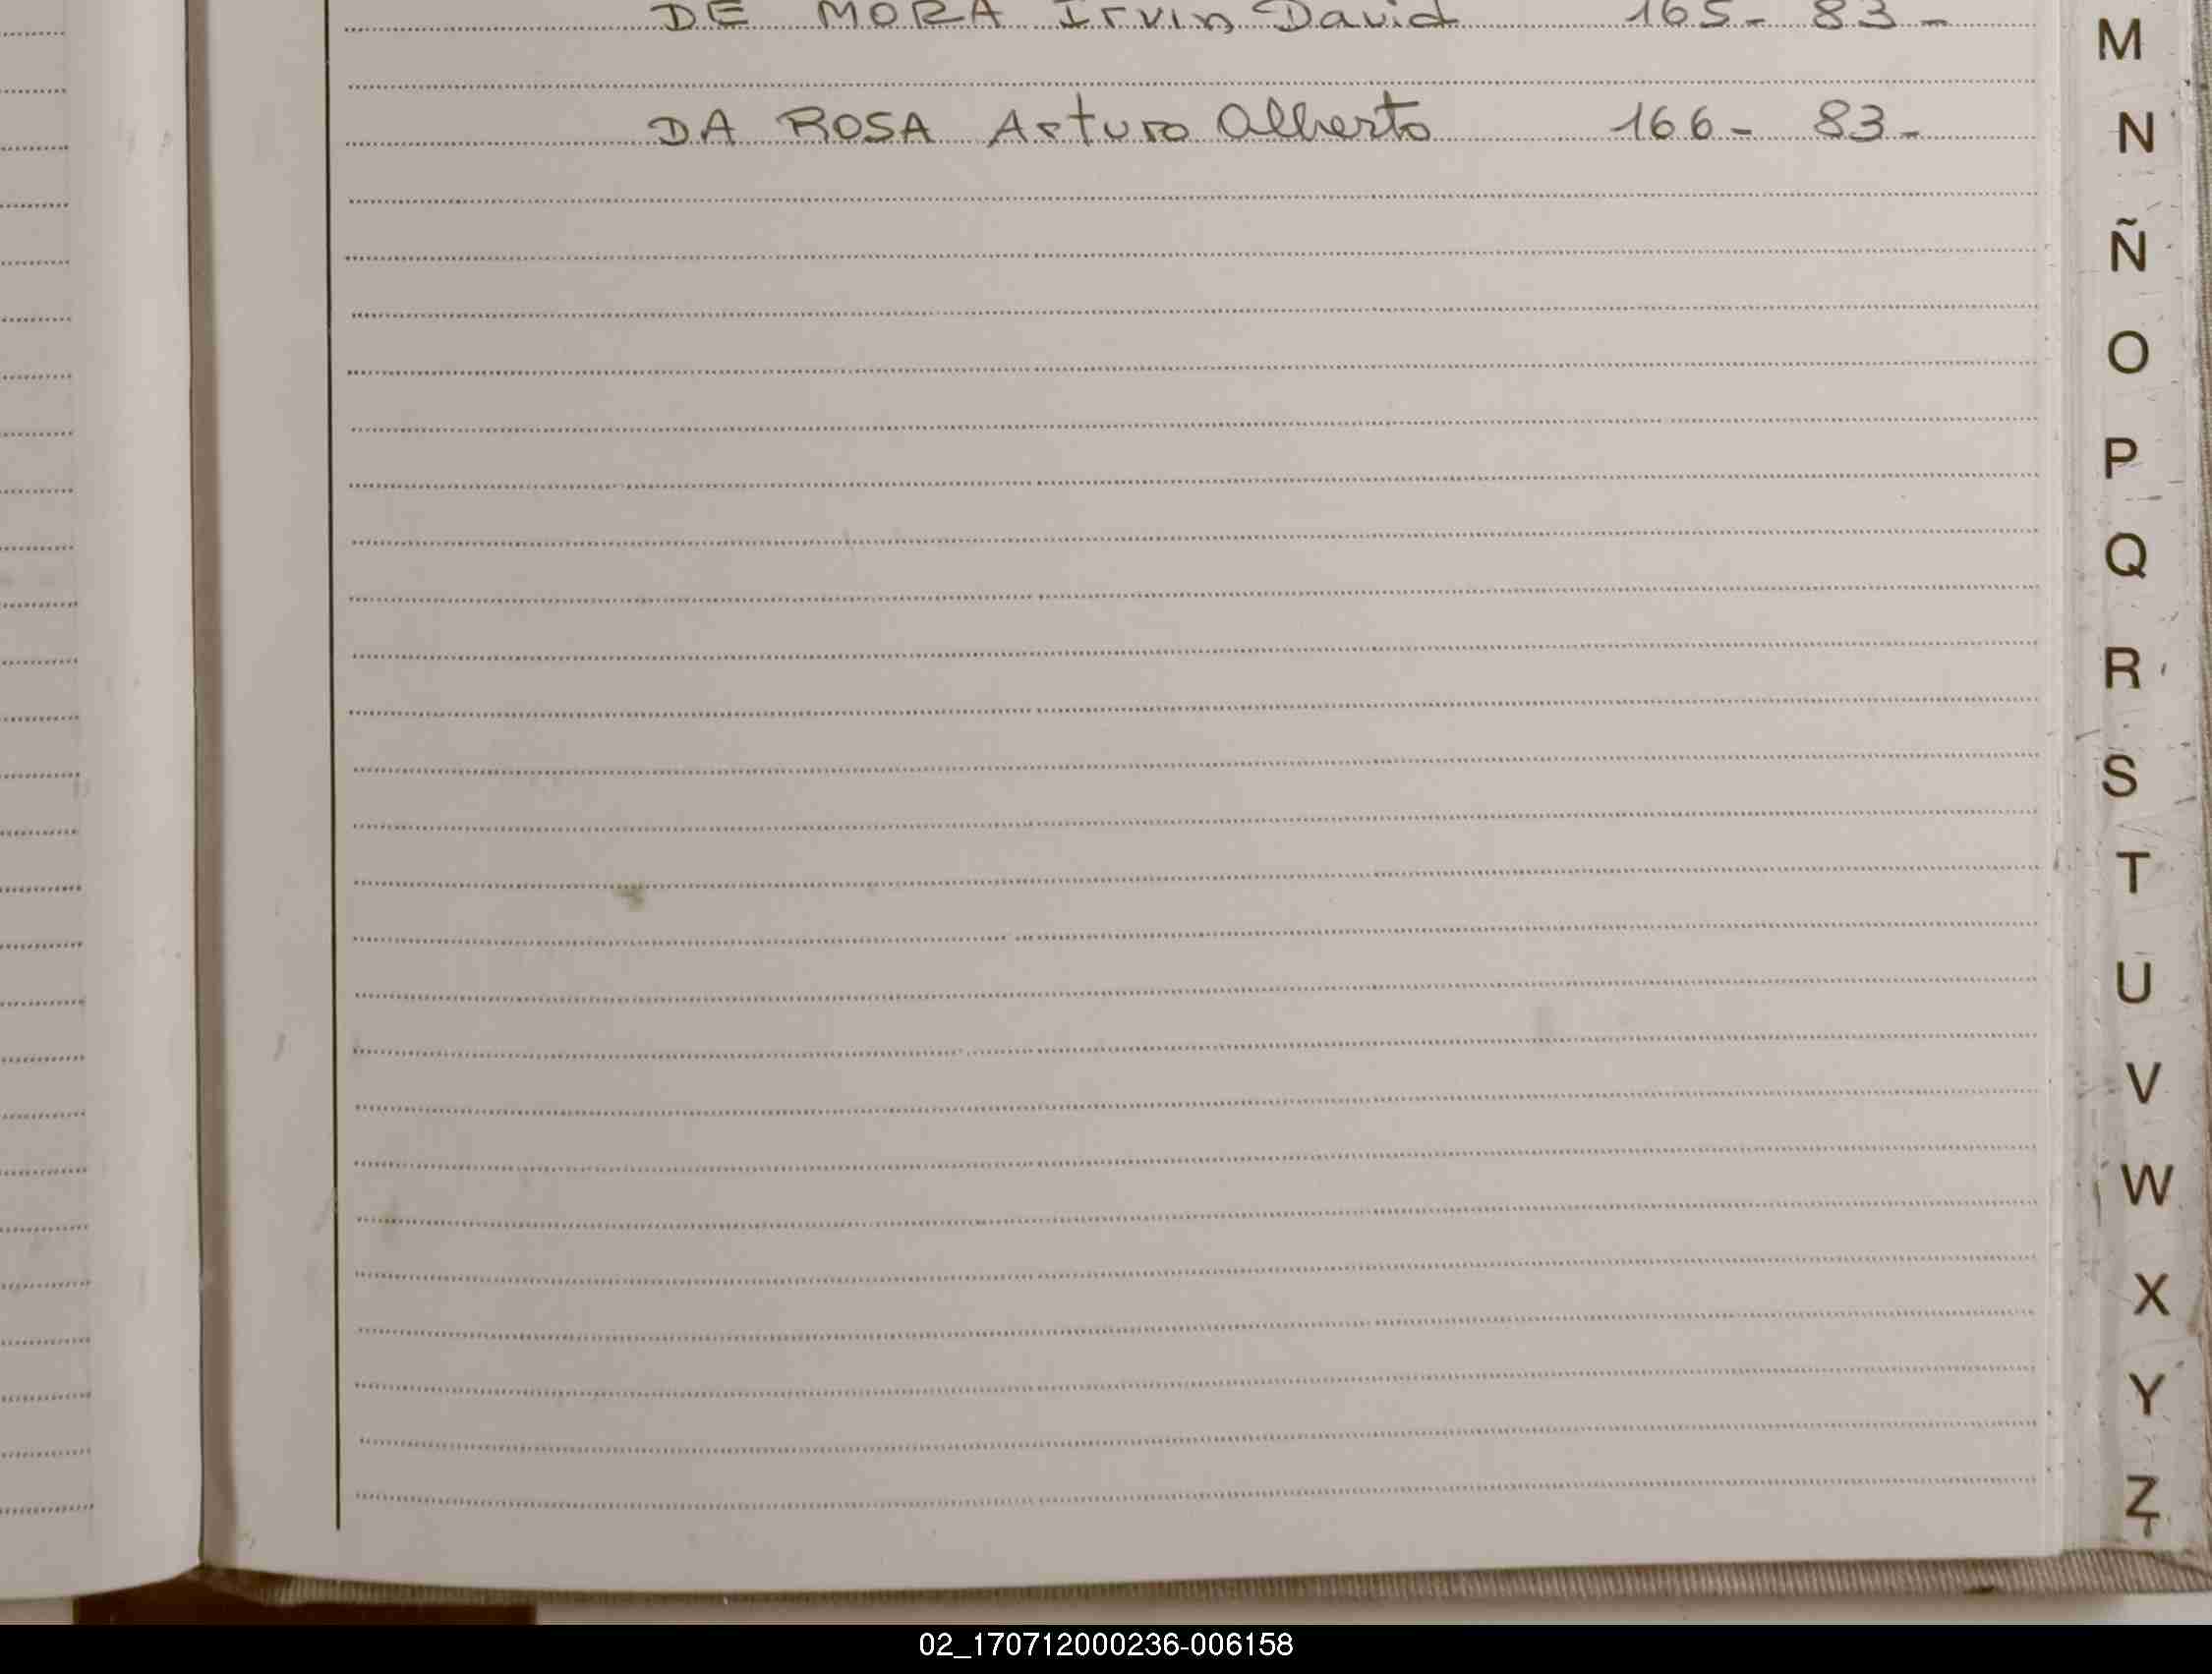 DE MORA Irvin David 165- 83-
DA ROSA Arturo Alberto 166- 83-
M
N
Ñ
O
P
Q
R
S
T
U
V
W
X
Y
Z
02_170712000236-006158